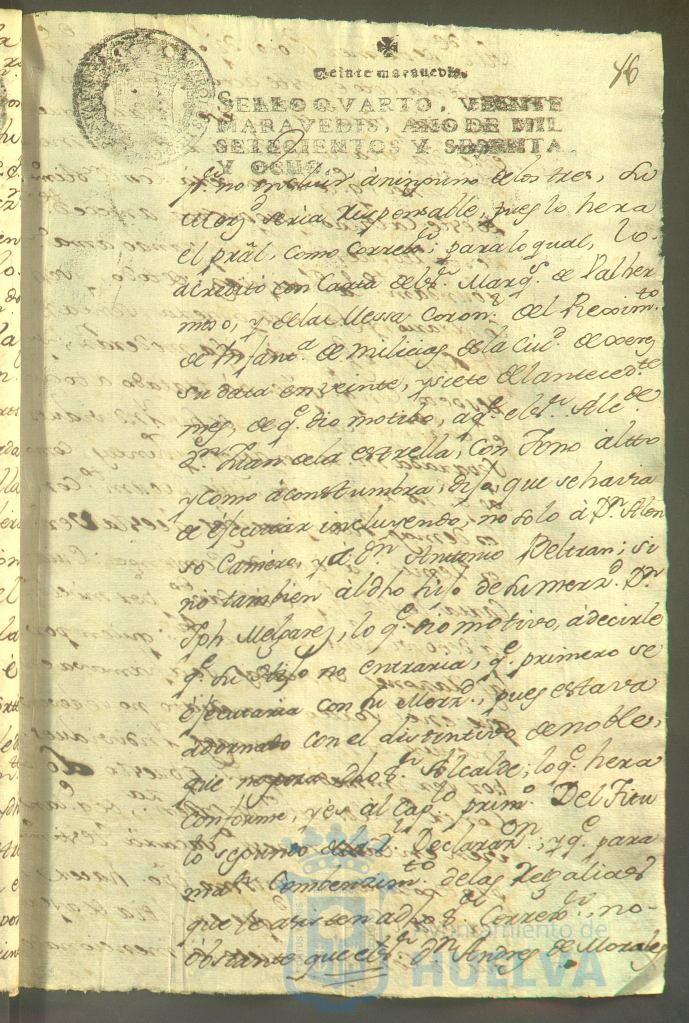 46
Veinte maravedis.
SELLO QVARTO, VEINTE
MARAVEDIS, AÑO DE MIL
SETECIENTOS Y SESENTA
Y OCHO.
no incluir à ninguno de los tres, Su
seria responsable, pues lo hera
el pral, como Correxor; para lo qual, lo
acredito con Carta del Sr. Marqs. de Valher
moso, y de las Messa Coronl. del Reximto
de Infanta. de Milicias de la Ciud. de Xerez
su data en veinte, y siete del antecedte
mes, de qe. dio motibo, a qe. el Sr. Alcde.
Dn. Juan de la estrella, con Tono altto
y como acostumbra, dijo, que se havia
de efecutar incluyendo, no solo à Dn. Alon
so Camero, y a Dn. Antonio Beltran; si
no tambien al dho hijo de su merzd. Dn.
Jph Melgarej, lo qe. dio motivo, à decirle
qe. su Hijo no entraria, qe. primero se
éjecutaria con su Merzd. pues estava
adornado con el distintivo de noble,
que no gosa dho Sr. Alcalde; lo qe. hera
conforme, y es al Capo. primo. Del Titu
lo segundo de la Rl. Declaraon., y qe. para
mas Combenzimto. de las Regalias
que le asisten a dho Sr. Correxor, no-
obstante que el Sr. Dn. Andres de Morales
Ayuntamiento de
HUELVA